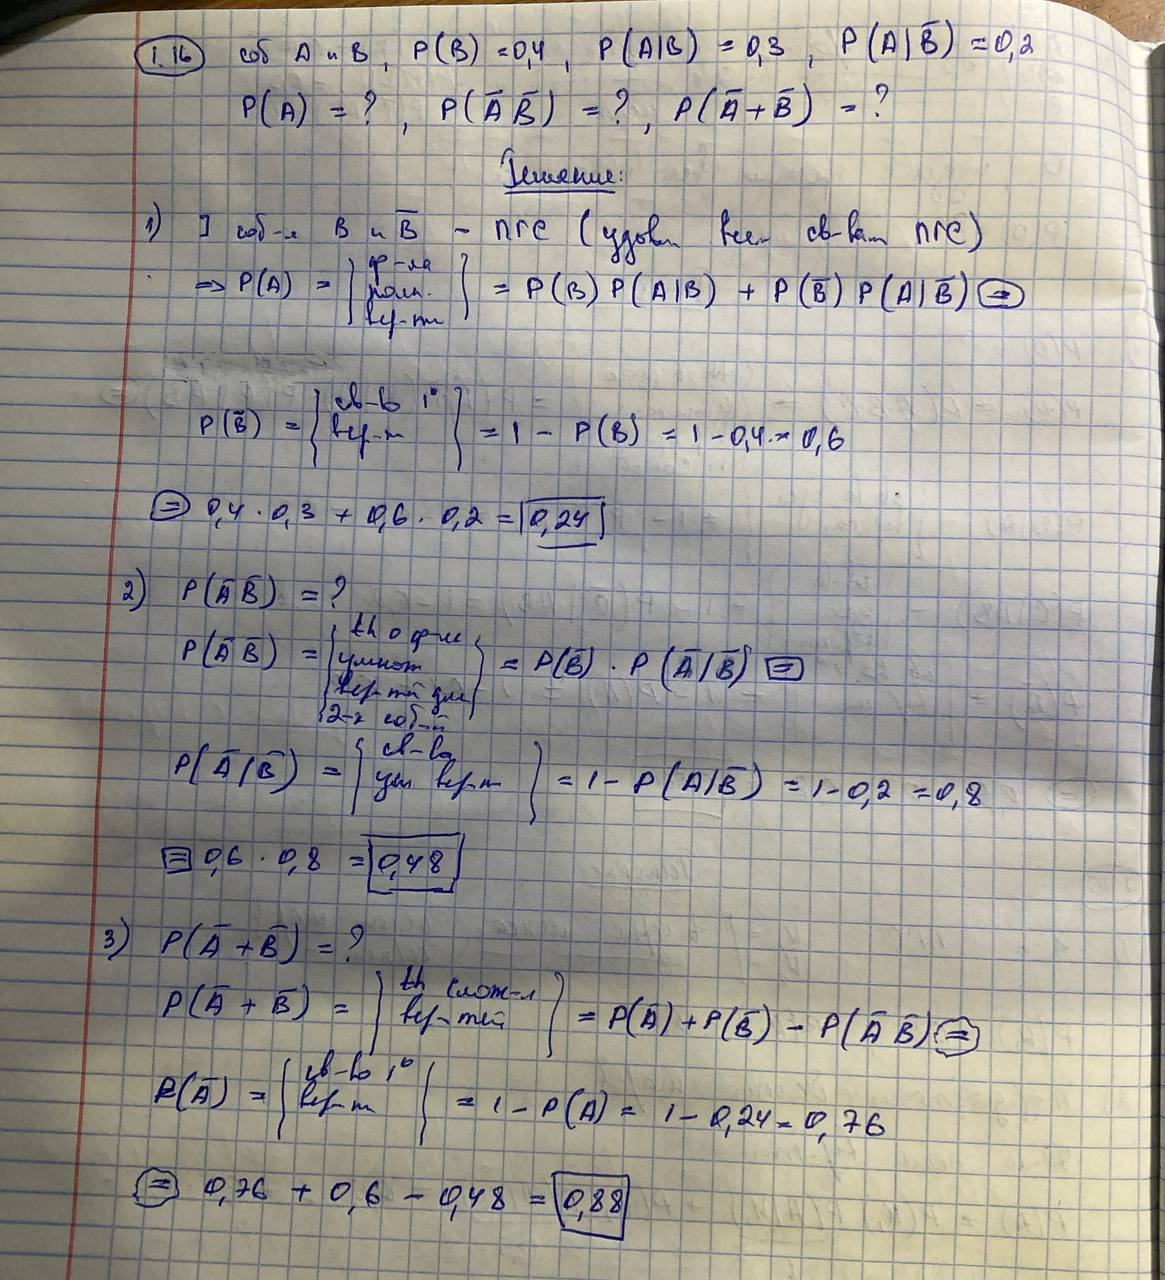 1.16 соб A и B, P(B) = 0,4, P(A|B) = 0,3, P(A|B̅) = 0,2
P(A) = ?, P(A̅ B̅) = ?, P(A̅ + B̅) = ?
Решение:
1) ] соб-я B и B̅ – ПГС (удовл всем св-вам ПГС)
=> P(A) = { ф-ла полн. вер-ти } = P(B) P(A|B) + P(B̅) P(A|B̅) =
P(B̅) = { св-во 1° вер-ти } = 1 - P(B) = 1 - 0,4 = 0,6
= 0,4 · 0,3 + 0,6 · 0,2 = 0,24
2) P(A̅ B̅) = ?
P(A̅ B̅) = { th о ф-ле умнож вер-тей для 2-х соб-й } = P(B̅) · P(A̅|B̅) =
P(A̅|B̅) = { св-во усл вер-ти } = 1 - P(A|B̅) = 1 - 0,2 = 0,8
= 0,6 · 0,8 = 0,48
3) P(A̅ + B̅) = ?
P(A̅ + B̅) = { th слож-я вер-тей } = P(A̅) + P(B̅) - P(A̅ B̅) =
P(A̅) = { св-во 1° вер-ти } = 1 - P(A) = 1 - 0,24 = 0,76
= 0,76 + 0,6 - 0,48 = 0,88